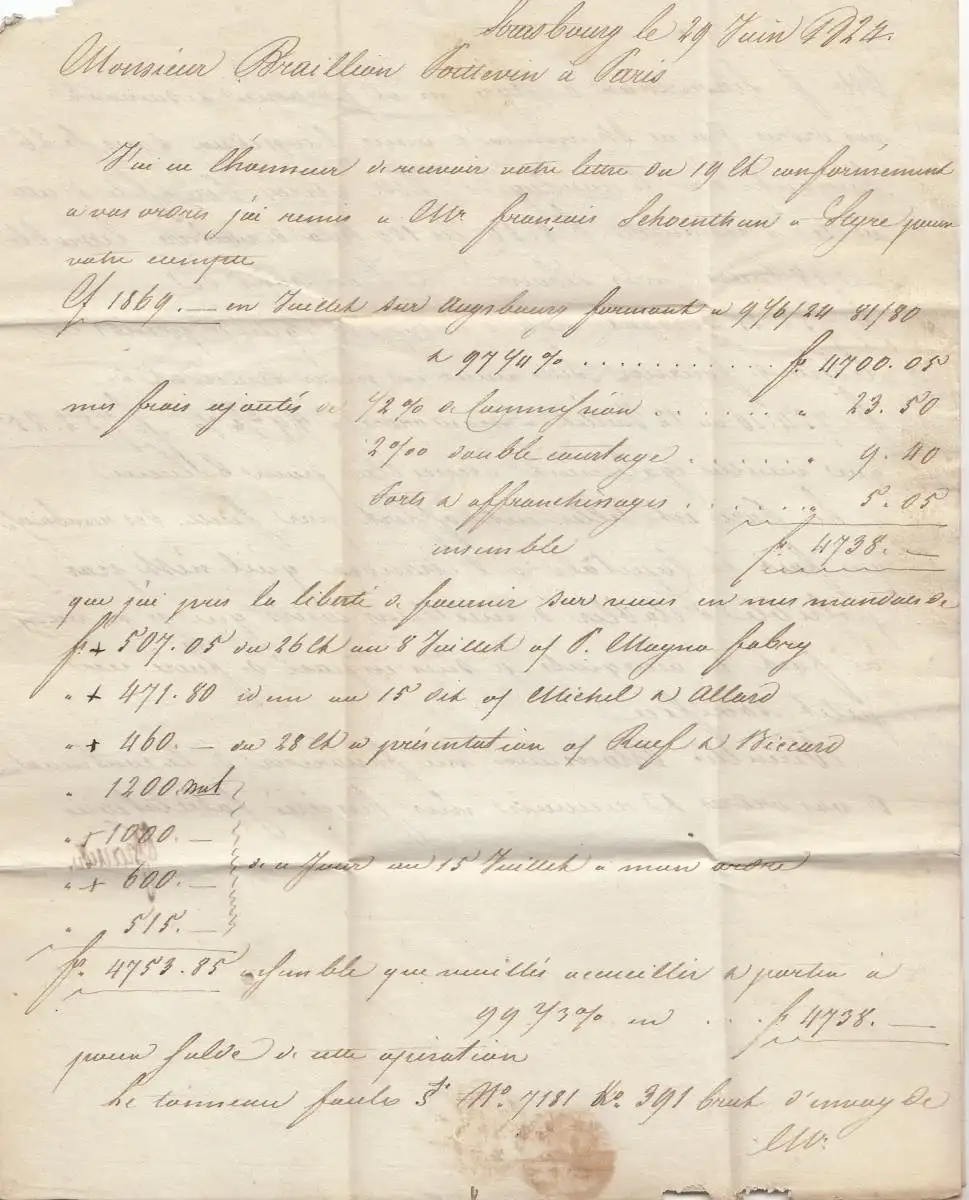 Strasbourg le 29 Juin 1824.
Monsieur Braillion Poittevin à Paris
J'ai eu l'honneur de recevoir votre lettre du 19 Ct conformément
à vos ordres j'ai remis à Mr françois Schoenthan à Steyr pour
votre compte
f 1869. — en Juillet sur Augsbourg formant
a 97 1/4 % . . . . . . . . . . . fs 4700.05
mes frais ajoutés de 1/2 % de Commission . . . . . . " 23.50
2 ‰ double courtage . . . . . . " 9.40
Ports & affranchissages . . . . . . " 5.05
ensemble fs 4738. —
que j'ai pris la liberté de fournir sur vous en mes mandats de
fs + 507.05 du 26 Ct au 8 Juillet o/ P. Magna fabry
" + 471.80 idem au 15 dit o/ Michel & Allard
" + 460. — du 28 Ct a présentation o/ Ruef & Biccard
" 1200
" 1000. —
" + 600. — de ce Jour au 15 Juillet a mon ordre
" 515. —
fs 4753.85 ensemble que veuillés accueillir & porter à
99 2/3 % en . . . fs 4738. —
pour solde de cette opération
Le tonneau faulx No. 7181 Ko. 391 brut d'envoy de
Mr.